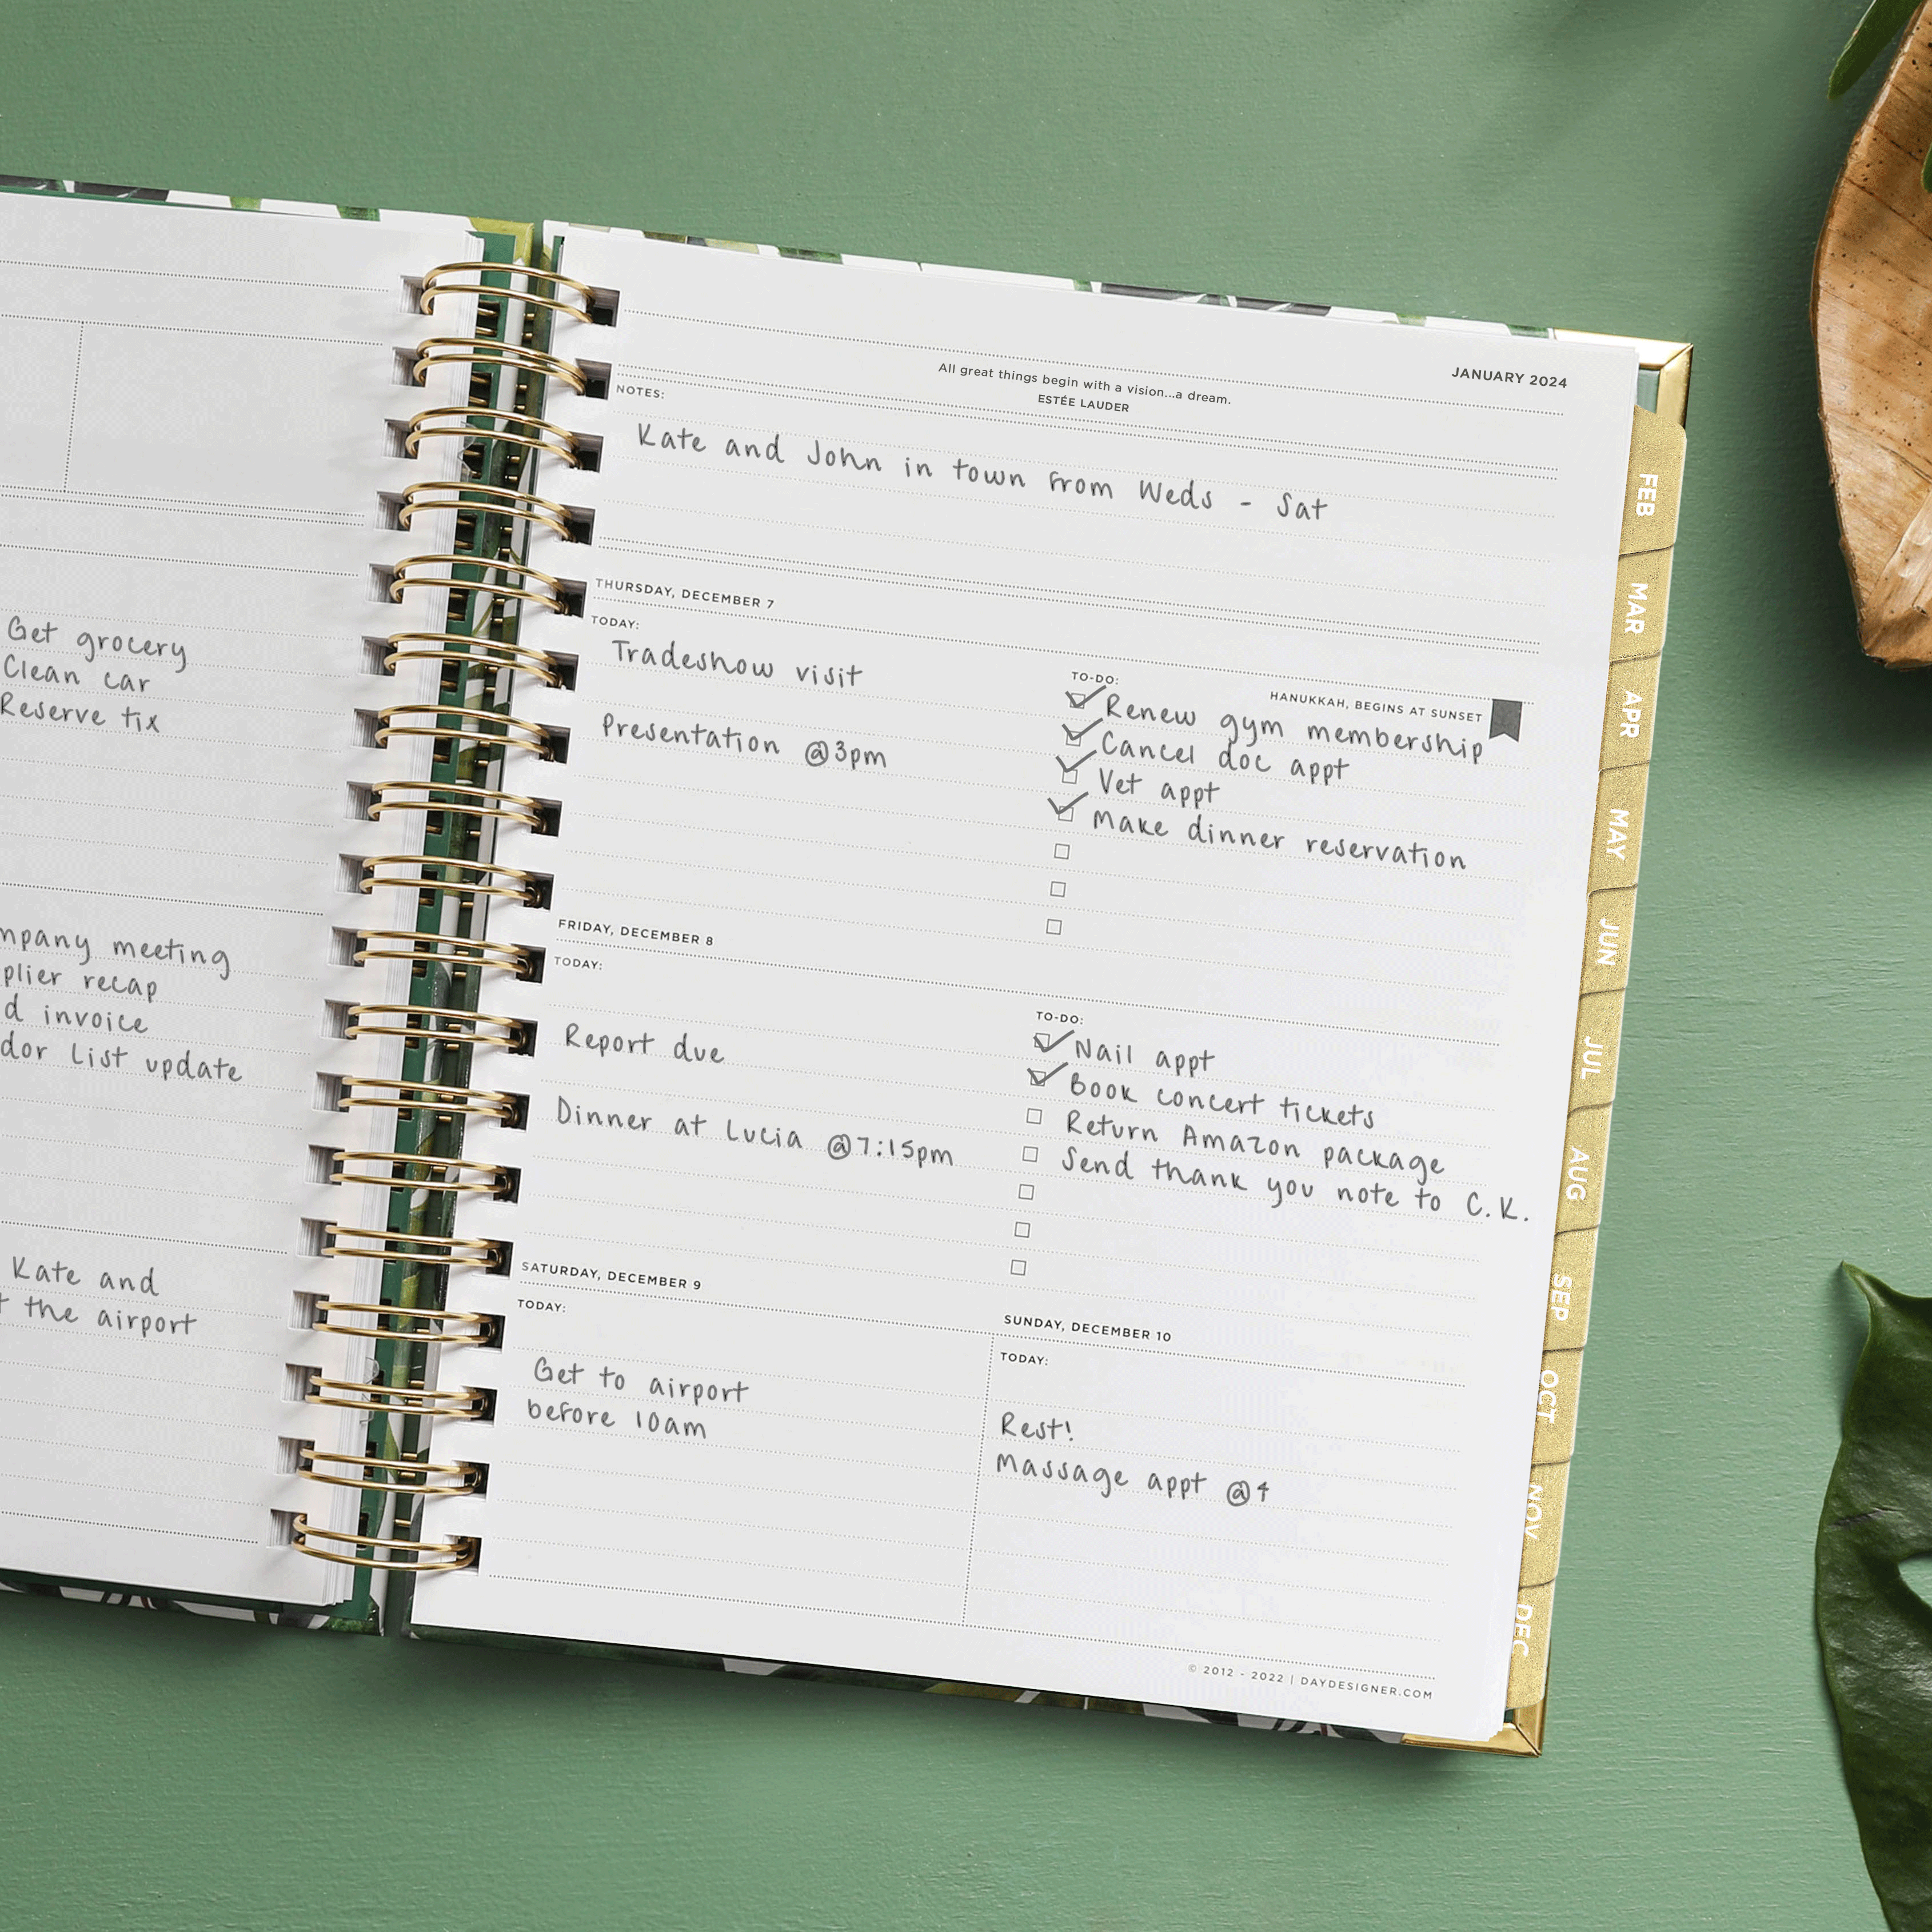 Get grocery
Clean car
Reserve tix
meeting
recap
invoice
List update
Kate and
the airport
JANUARY 2024
All great things begin with a vision...a dream.
ESTÉE LAUDER
NOTES:
Kate and John in town from Weds - Sat
THURSDAY, DECEMBER 7
TODAY:
Tradeshow visit
Presentation @3pm
HANUKKAH, BEGINS AT SUNSET
TO-DO:
Renew gym membership
Cancel doc appt
Vet appt
Make dinner reservation
FRIDAY, DECEMBER 8
TODAY:
Report due
Dinner at Lucia @7:15pm
TO-DO:
Nail appt
Book concert tickets
Return Amazon package
Send thank you note to C.K.
SATURDAY, DECEMBER 9
TODAY:
Get to airport
before 10am
SUNDAY, DECEMBER 10
TODAY:
Rest!
Massage appt @4
© 2012 - 2022 | DAYDESIGNER.COM
FEB
MAR
APR
MAY
JUN
JUL
AUG
SEP
OCT
NOV
DEC